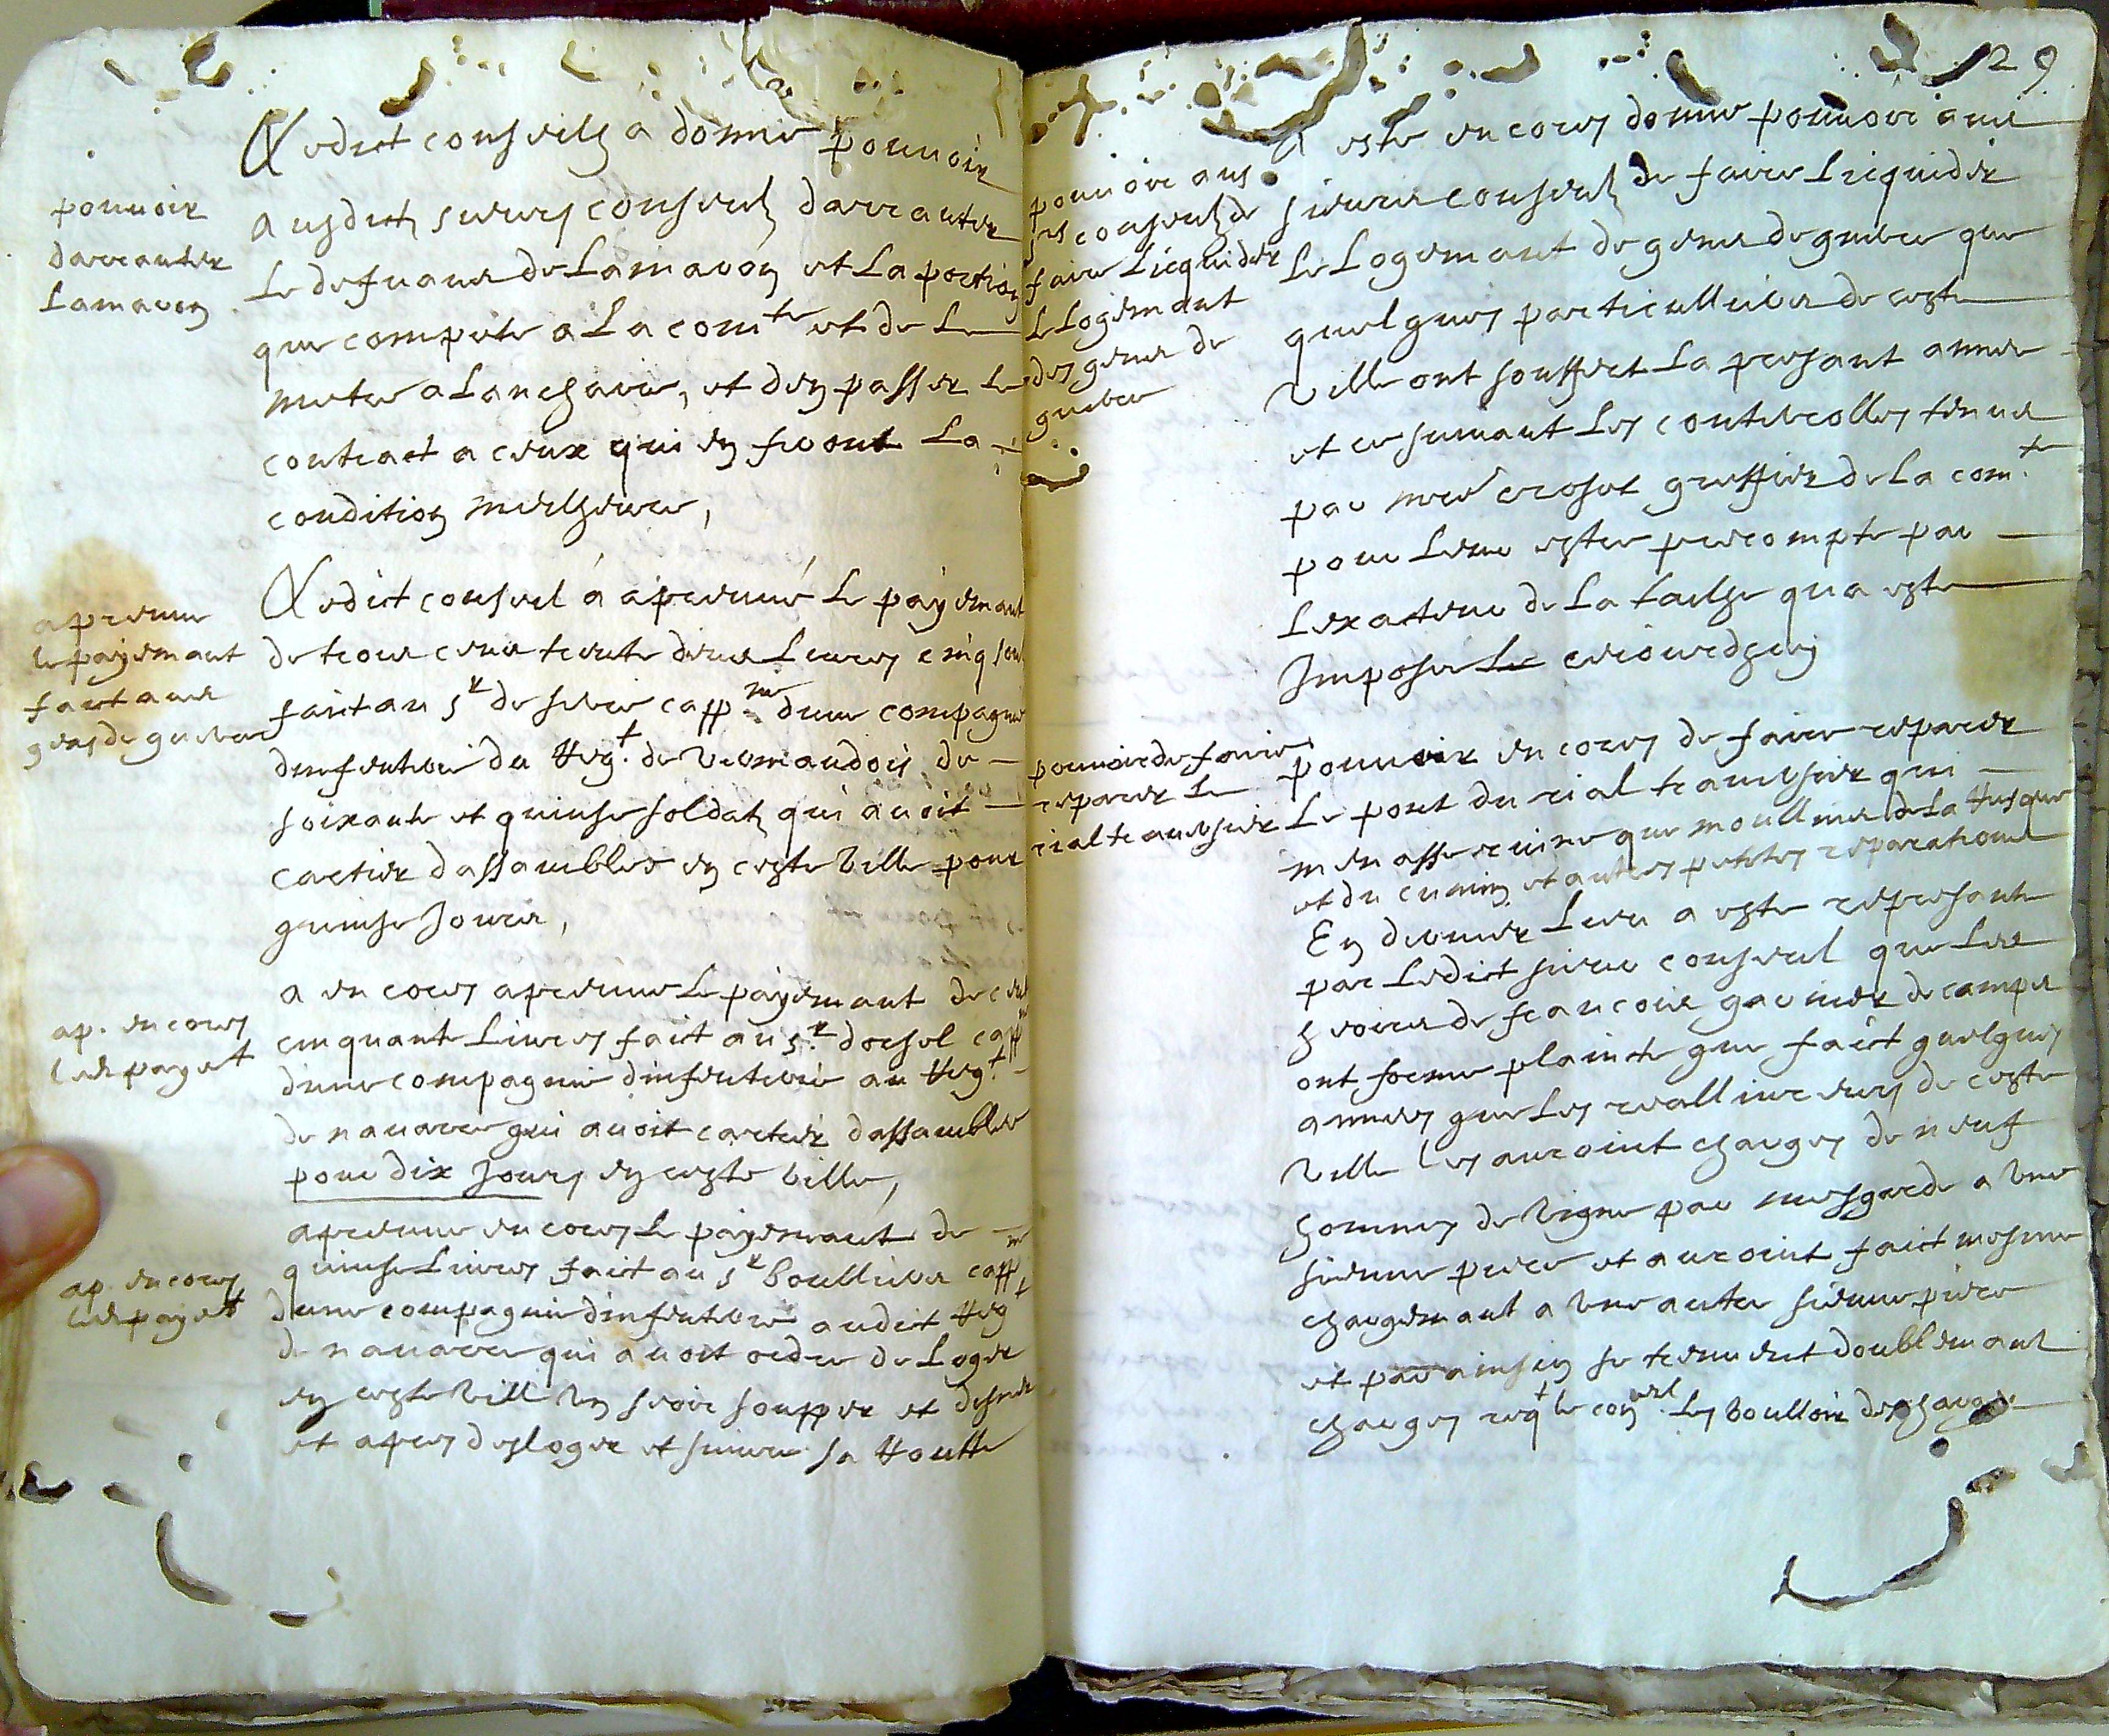 pouuoir
darranter
Lamavon
Ledict conseilz a donne pouuoir
ausdictz sieurs conseulz darranter
Le defuaux de Lamavon et La portion
que compete a La com.te et de Le
metre a Lanchere, et den passer Le
contract a ceux qui en feront La
condition meilheure,
apreuue
le payemant
faict aux
gens de guerre
Ledict conseil á apreuué Le payemant
de trois cens trente deux Liures cinq sou
faict au s.r de capp.ne dune compagnie
dinfenterie du Reg.t de Vermandois de
soixante et quinse soldatz qui auoit
cartier dassambler en ceste Ville pour
quinse Jours,
ap. encores
led payet
a encores apreuue Le payemant de cent
cinquante Liures faict au s.r dorsel capp
dune compagnie dinfenterie au Reg.t
de nauarre qui auoit cartier dassambler
pour dix Jours en ceste Ville,
ap. encores
led payet
apreuue encores Le payemant de
quinse Liures faict au s.r boulliere capp.ne
dune compagnie dinfenterie audict Reg.t
de nauarre qui auoit ordre de Loger
en ceste Ville Un soir soupper et disner
et apres desloger et suiure sa Routte
29
pouuoir aus
srs conseulz de
faire Licquider
Le Logemant
des gens de
guerre
A este encores donne pouuoir aux
sieurs conseulz de faire Licquider
Le Logemant de gens de guerre que
quelques particulliers de ceste
Ville ont souffert La presant annee
et ce suiuant Les conterolles tenus
par me croset greffier de La com.te
pour Leur estre precompte par
Lexacteur de La tailhe qua este
Imposee ce iourdhuy
pouuoir de faire
reparer Le
rial trauersier
pouuoir encores de faire reparer
Le pont du rial trauersier qui
men asse ruine que moullins de La
et du et autres petites reparations
En dernier Lieu a este represante
par Ledict sieur conseul que Les
hoirs de francois garnier de camps
ont forme plainte que faict quelques
annees que Les reallivreurs de ceste
Ville Les auroint charges de neuf
hommes de Vigne par mesgarde a Une
sienne piece et auroint faict mesme
chargemant a Une autre sienne piece
et par ainsin se treuuent doublemant
charges req.t le con.eil Les Voulloir descharger